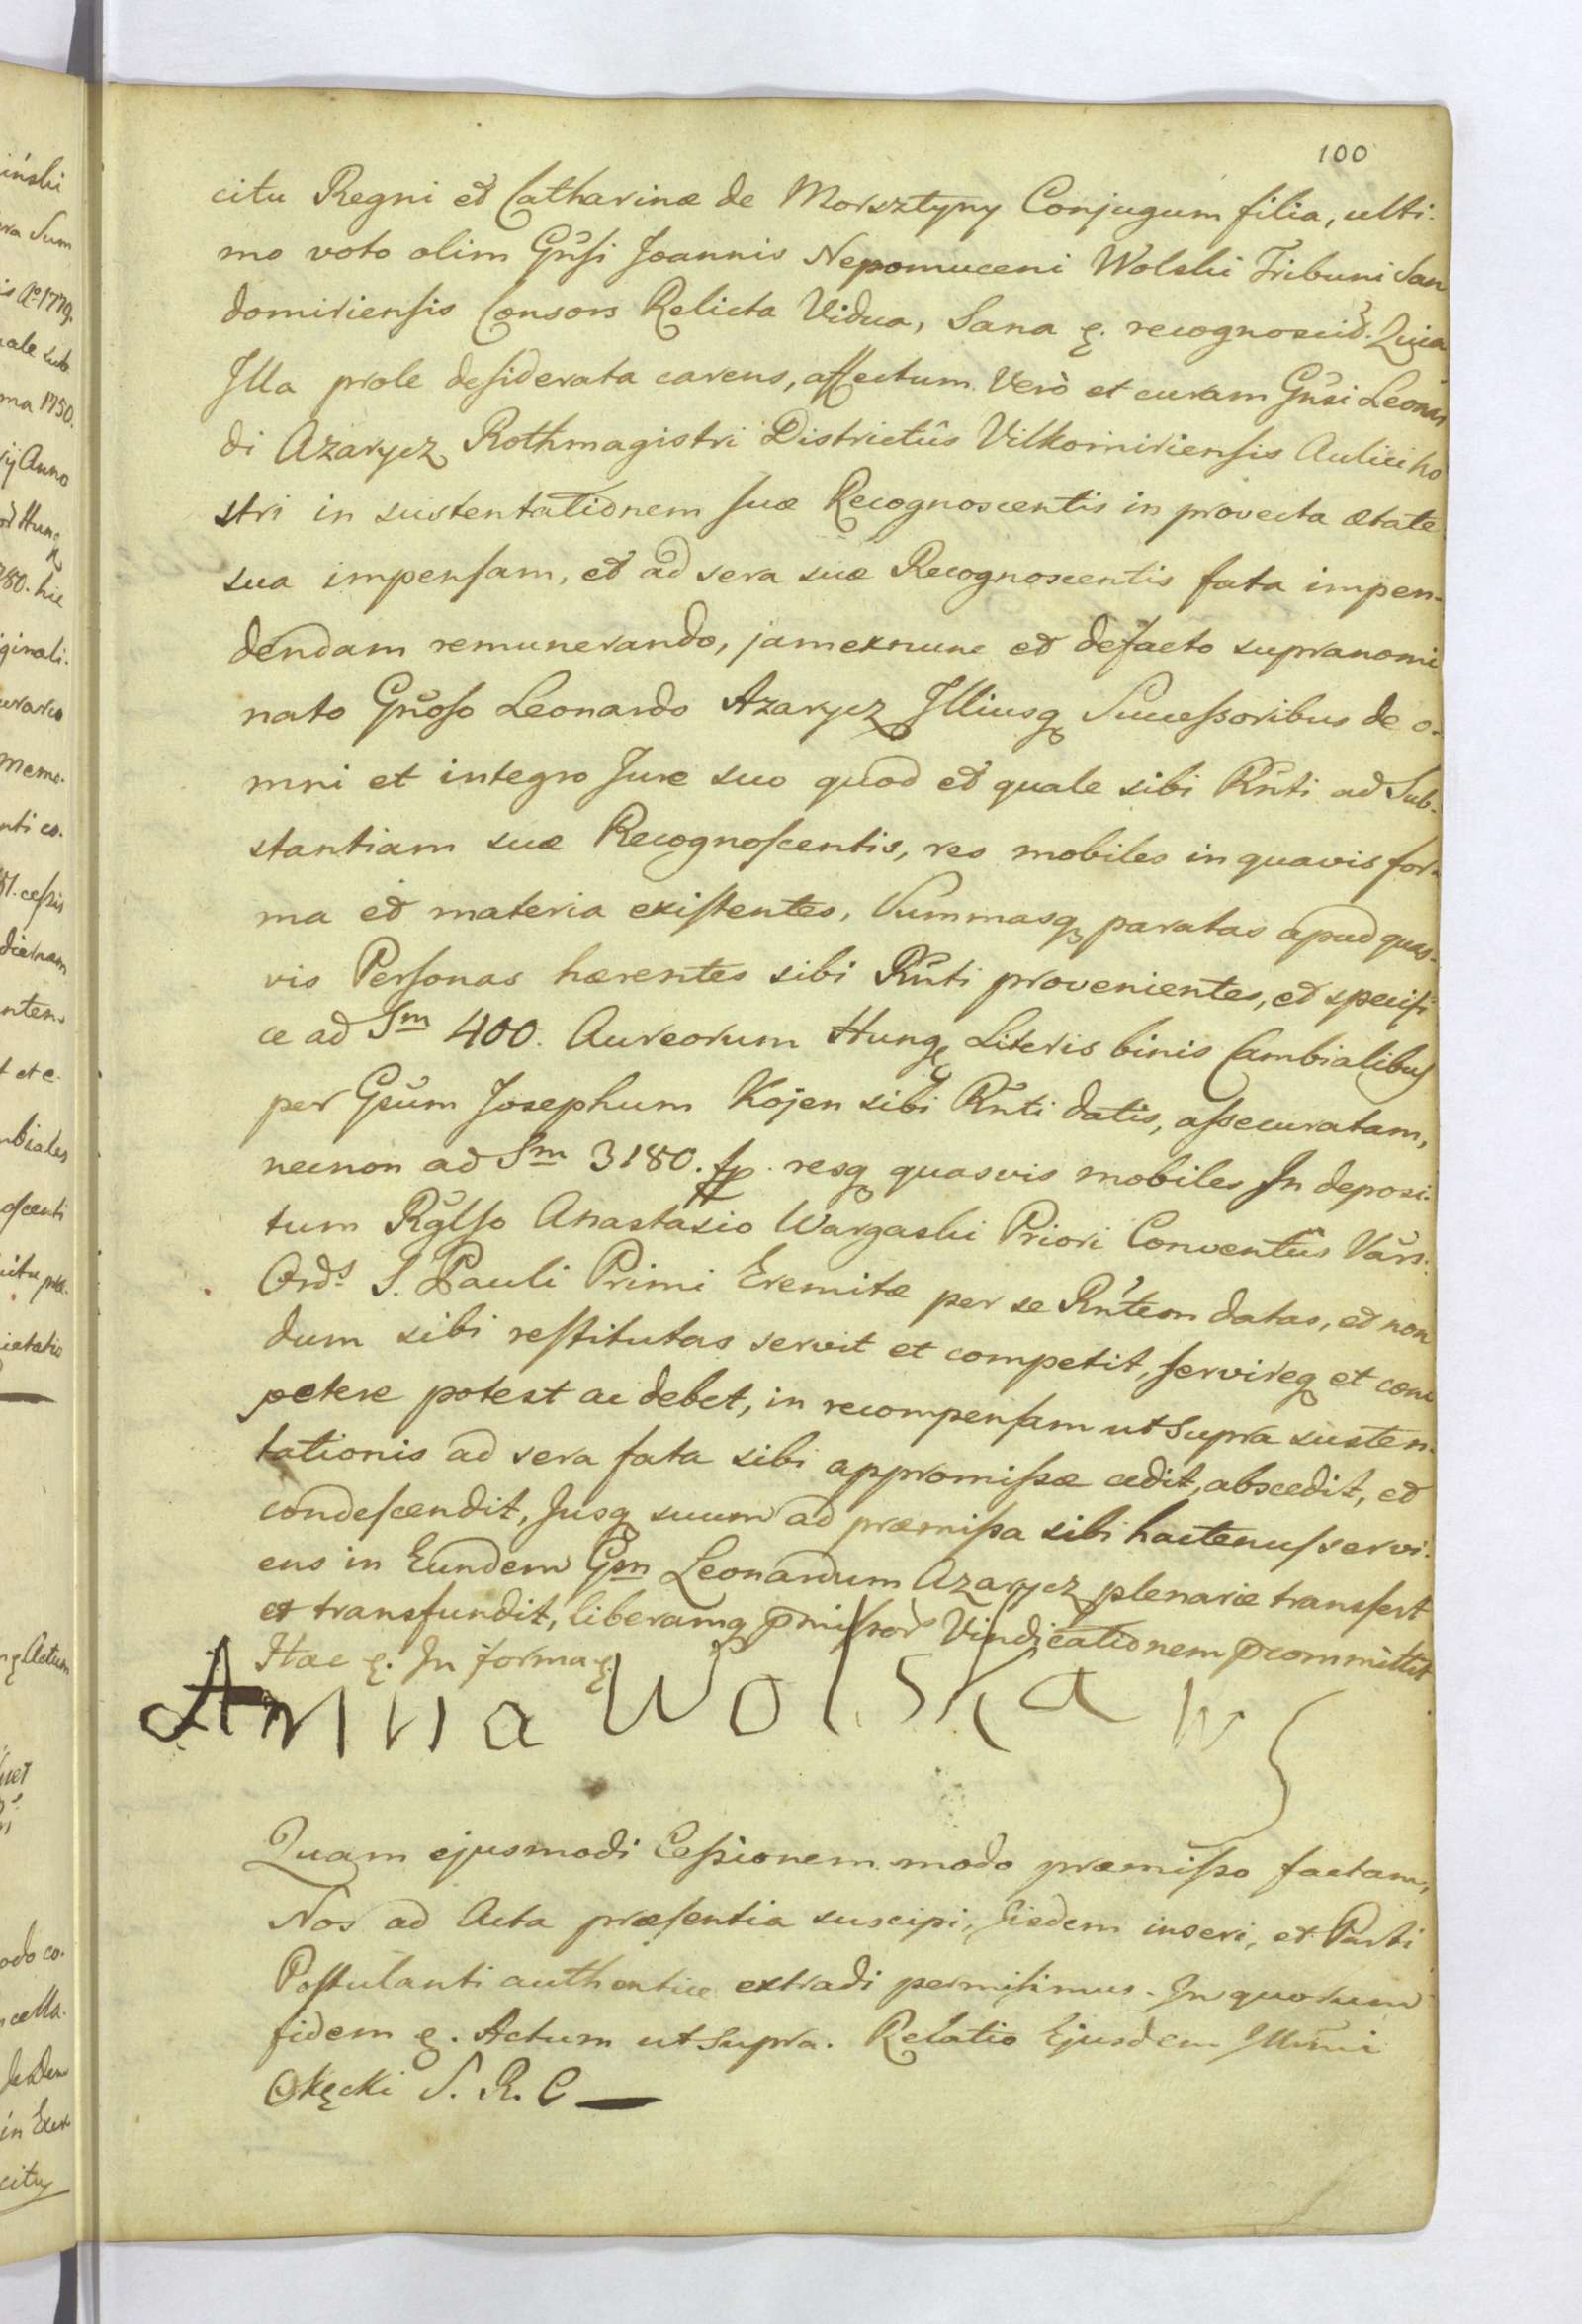 100
citu Regni et Catharinæ de Morsztyny Conjugum filia, ulti-
mo voto olim Gnsi Joannis Nepomuceni Wolski Tribuni San
domiriensis Consors Relicta Vidua, Sana ę. recognoscit. Quia
Illa prole desiderata carens, affectum Verò et curam Gnsi Leonar
di Azarycz Rothmagistri Districtûs Vilkomiriensis Aulici No
stri in sustentationem suæ Recognoscentis in provecta ætate
sua impensam, et ad sera suæ Recognoscentis fata impen-
dendam remunerando, jamexnunc et defacto supranomi
nato Gnoso Leonardo Azarycz Illiusq Successoribus de o-
mni et integro Jure suo quod et quale sibi Rnti ad Sub-
stantiam suæ Recognoscentis, res mobiles in quavis for-
ma et materia existentes, Summasq paratas apud quas-
vis Personas hærentes sibi Rnti provenientes, et specifi
ce ad Sm 400. Aureorum Hung Literis binis Cambialibus
per Gsum Josephum Kojen sibi Rnti datis, assecuratam,
necnon ad Sm 3180. fp. resq quasvis mobiles In deposi-
tum Rglso Anastasio Wargaski Priori Conventûs Vars.
Ords S. Pauli Primi Eremitæ per se Rntem datas, et non
dum sibi restitutas servit et competit, servireq et com
petere potest ac debet, in recompensam ut Supra susten-
tationis ad sera fata sibi appromissæ cedit, abscedit, et
condescendit, Jusq suum ad præmissa sibi hactenus servi-
ens in Eundem Gsm Leonardum Azarycz plenarie transfert
et transfundit, liberamq pmissor Vindicationem pcommittit
Hac ę. In forma ę.
Anna Wolska w s
Quam ejusmodi Cessionem modo præmisso factam,
Nos ad Acta præsentia suscipi, Eisdem inseri, et Parti
Postulanti authentice extradi permisimus. In quorum
fidem ę. Actum ut supra. Relatio Ejusdem Illmi
Okęcki S. R. C